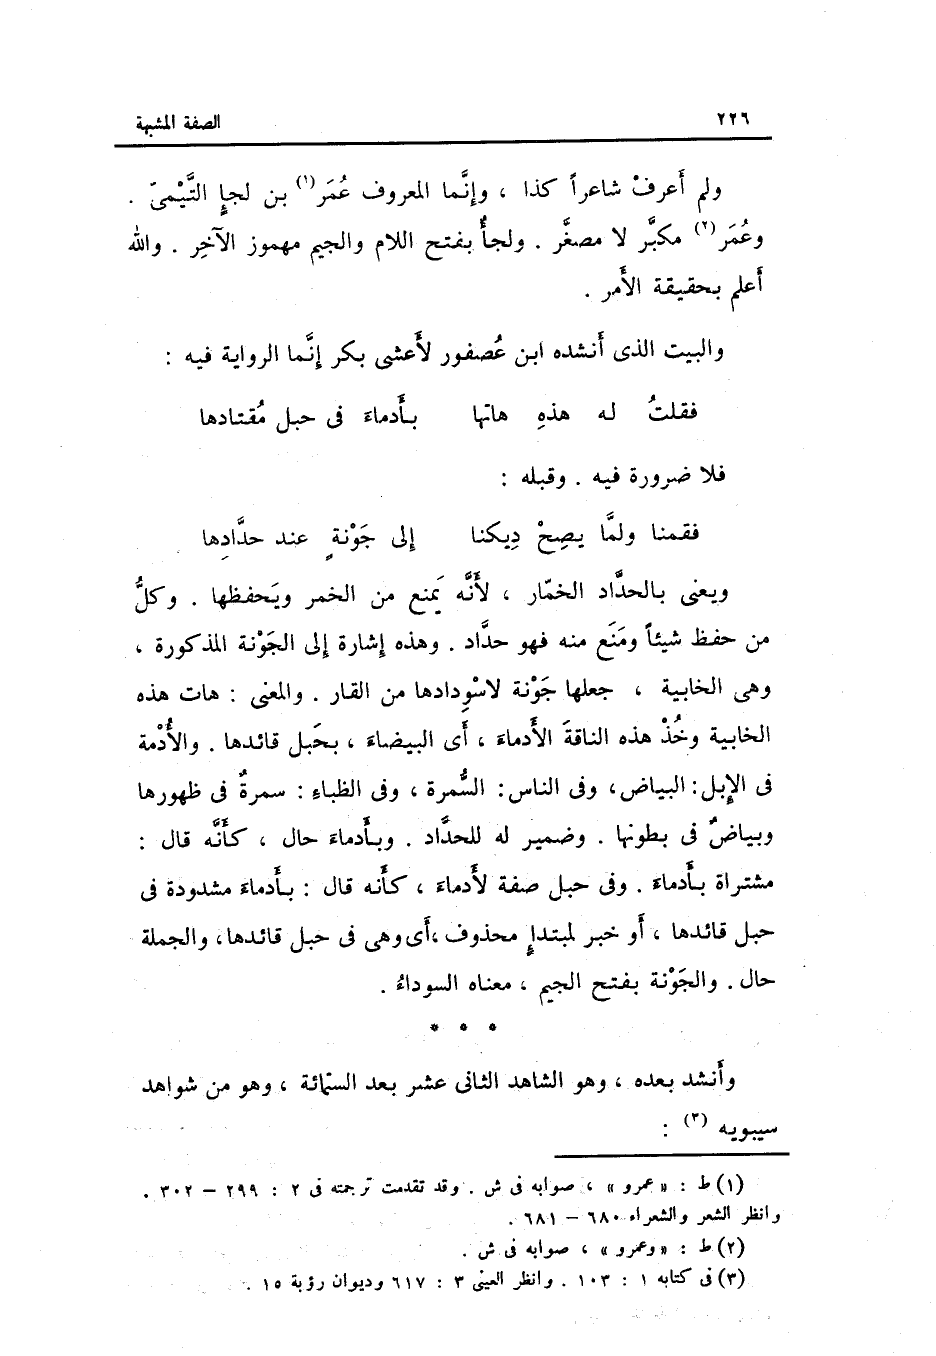 ٢٢٦ الصفة المشبهة
ولم أَعرفْ شاعراً كذا ، وإنَّما المعروف عُمَر(١) بن لجإٍ التَّيْمىّ .
وعُمَر(٢) مكبَّر لا مصغَّر . ولجأٌ بفتح اللام والجيم مهموز الآخِر . والله
أَعلم بحقيقة الأَمر .
والبيت الذى أَنشده ابن عُصفور لأَعشى بكر إِنَّما الرواية فيه :
فقلتُ له هذهِ هاتها بأَدماءَ فى حبل مُقتادها
فلا ضرورة فيه . وقبله :
فقمنا ولمَّا يصِحْ دِيكنا إلى جَوْنةٍ عند حدَّادِها
ويعنى بالحدَّاد الخمّار ، لأَنَّه يَمنع من الخمر ويَحفظها . وكلُّ
من حفظ شيئاً ومَنَع منه فهو حدَّاد . وهذه إشارة إلى الجَوْنة المذكورة ،
وهى الخابية ، جعلها جَوْنة لاسْوِدادها من القار . والمعنى : هات هذه
الخابية وخُذْ هذه الناقةَ الأَدماءَ ، أَى البيضاءَ ، بحَبل قائدها . والأُدْمة
فى الإِبل: البياض، وفى الناس: السُّمرة ، وفى الظباءِ : سمرةٌ فى ظهورها
وبياضٌ فى بطونها . وضمير له للحدَّاد . وبأَدماءَ حال ، كأَنَّه قال :
مشتراة بأَدماءَ . وفى حبل صفة لأَدماءَ ، كأَنه قال : بأَدماءَ مشدودة فى
حبل قائدها ، أَو خبر لمبتدإٍ محذوف ،أَى وهى فى حبل قائدها، والجملة
حال . والجَوْنة بفتح الجيم ، معناه السوداءُ .
* * *
وأَنشد بعده ، وهو الشاهد الثانى عشر بعد الستمائة ، وهو من شواهد
سيبويه (٣) :
(١) ط : « عمرو » ، صوابه فى ش . وقد تقدمت ترجمته فى ٢ : ٢٩٩ – ٣٠٢ .
وانظر الشعر والشعراء ٦٨٠ – ٦٨١ .
(٢) ط : « وعمرو » ، صوابه فى ش .
(٣) فى كتابه ١ : ١٠٣ . وانظر العينى ٣ : ٦١٧ وديوان رؤبة ١٥ .